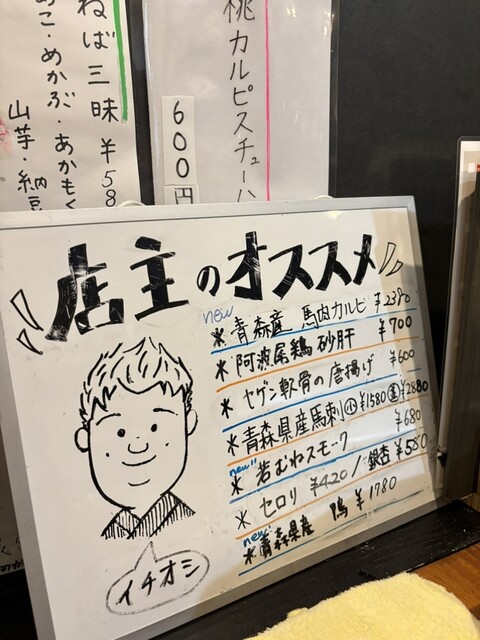 ねば三昧 ¥58
あこ・めかぶ・あかもく
山芋・納豆
桃カルピスチューハ
600円
店主のオススメ
new
* 青森産 馬肉カルビ ¥2380
* 阿波尾鶏 砂肝 ¥700
* セゲン軟骨の唐揚げ ¥600
* 青森県産馬刺 小 ¥1580 ¥2880
new
* 若むねスモーク ¥680
* セロリ ¥420 / 銀杏 ¥580
new
* 青森県産 鴨 ¥1780
イチオシ